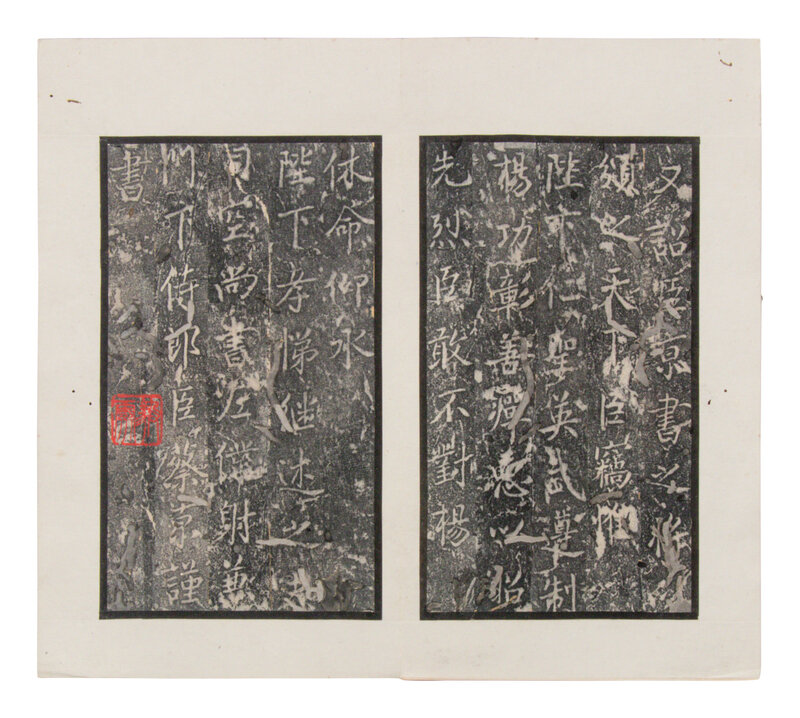 又詔臣京書之將
頒之天下臣竊惟
陛下仁聖英武遵制
楊功彰善癉惡以昭
先烈臣敢不對楊
休命仰承
陛下孝悌継述之志
司空尚書左僕射兼
門下侍郎臣蔡京謹
書